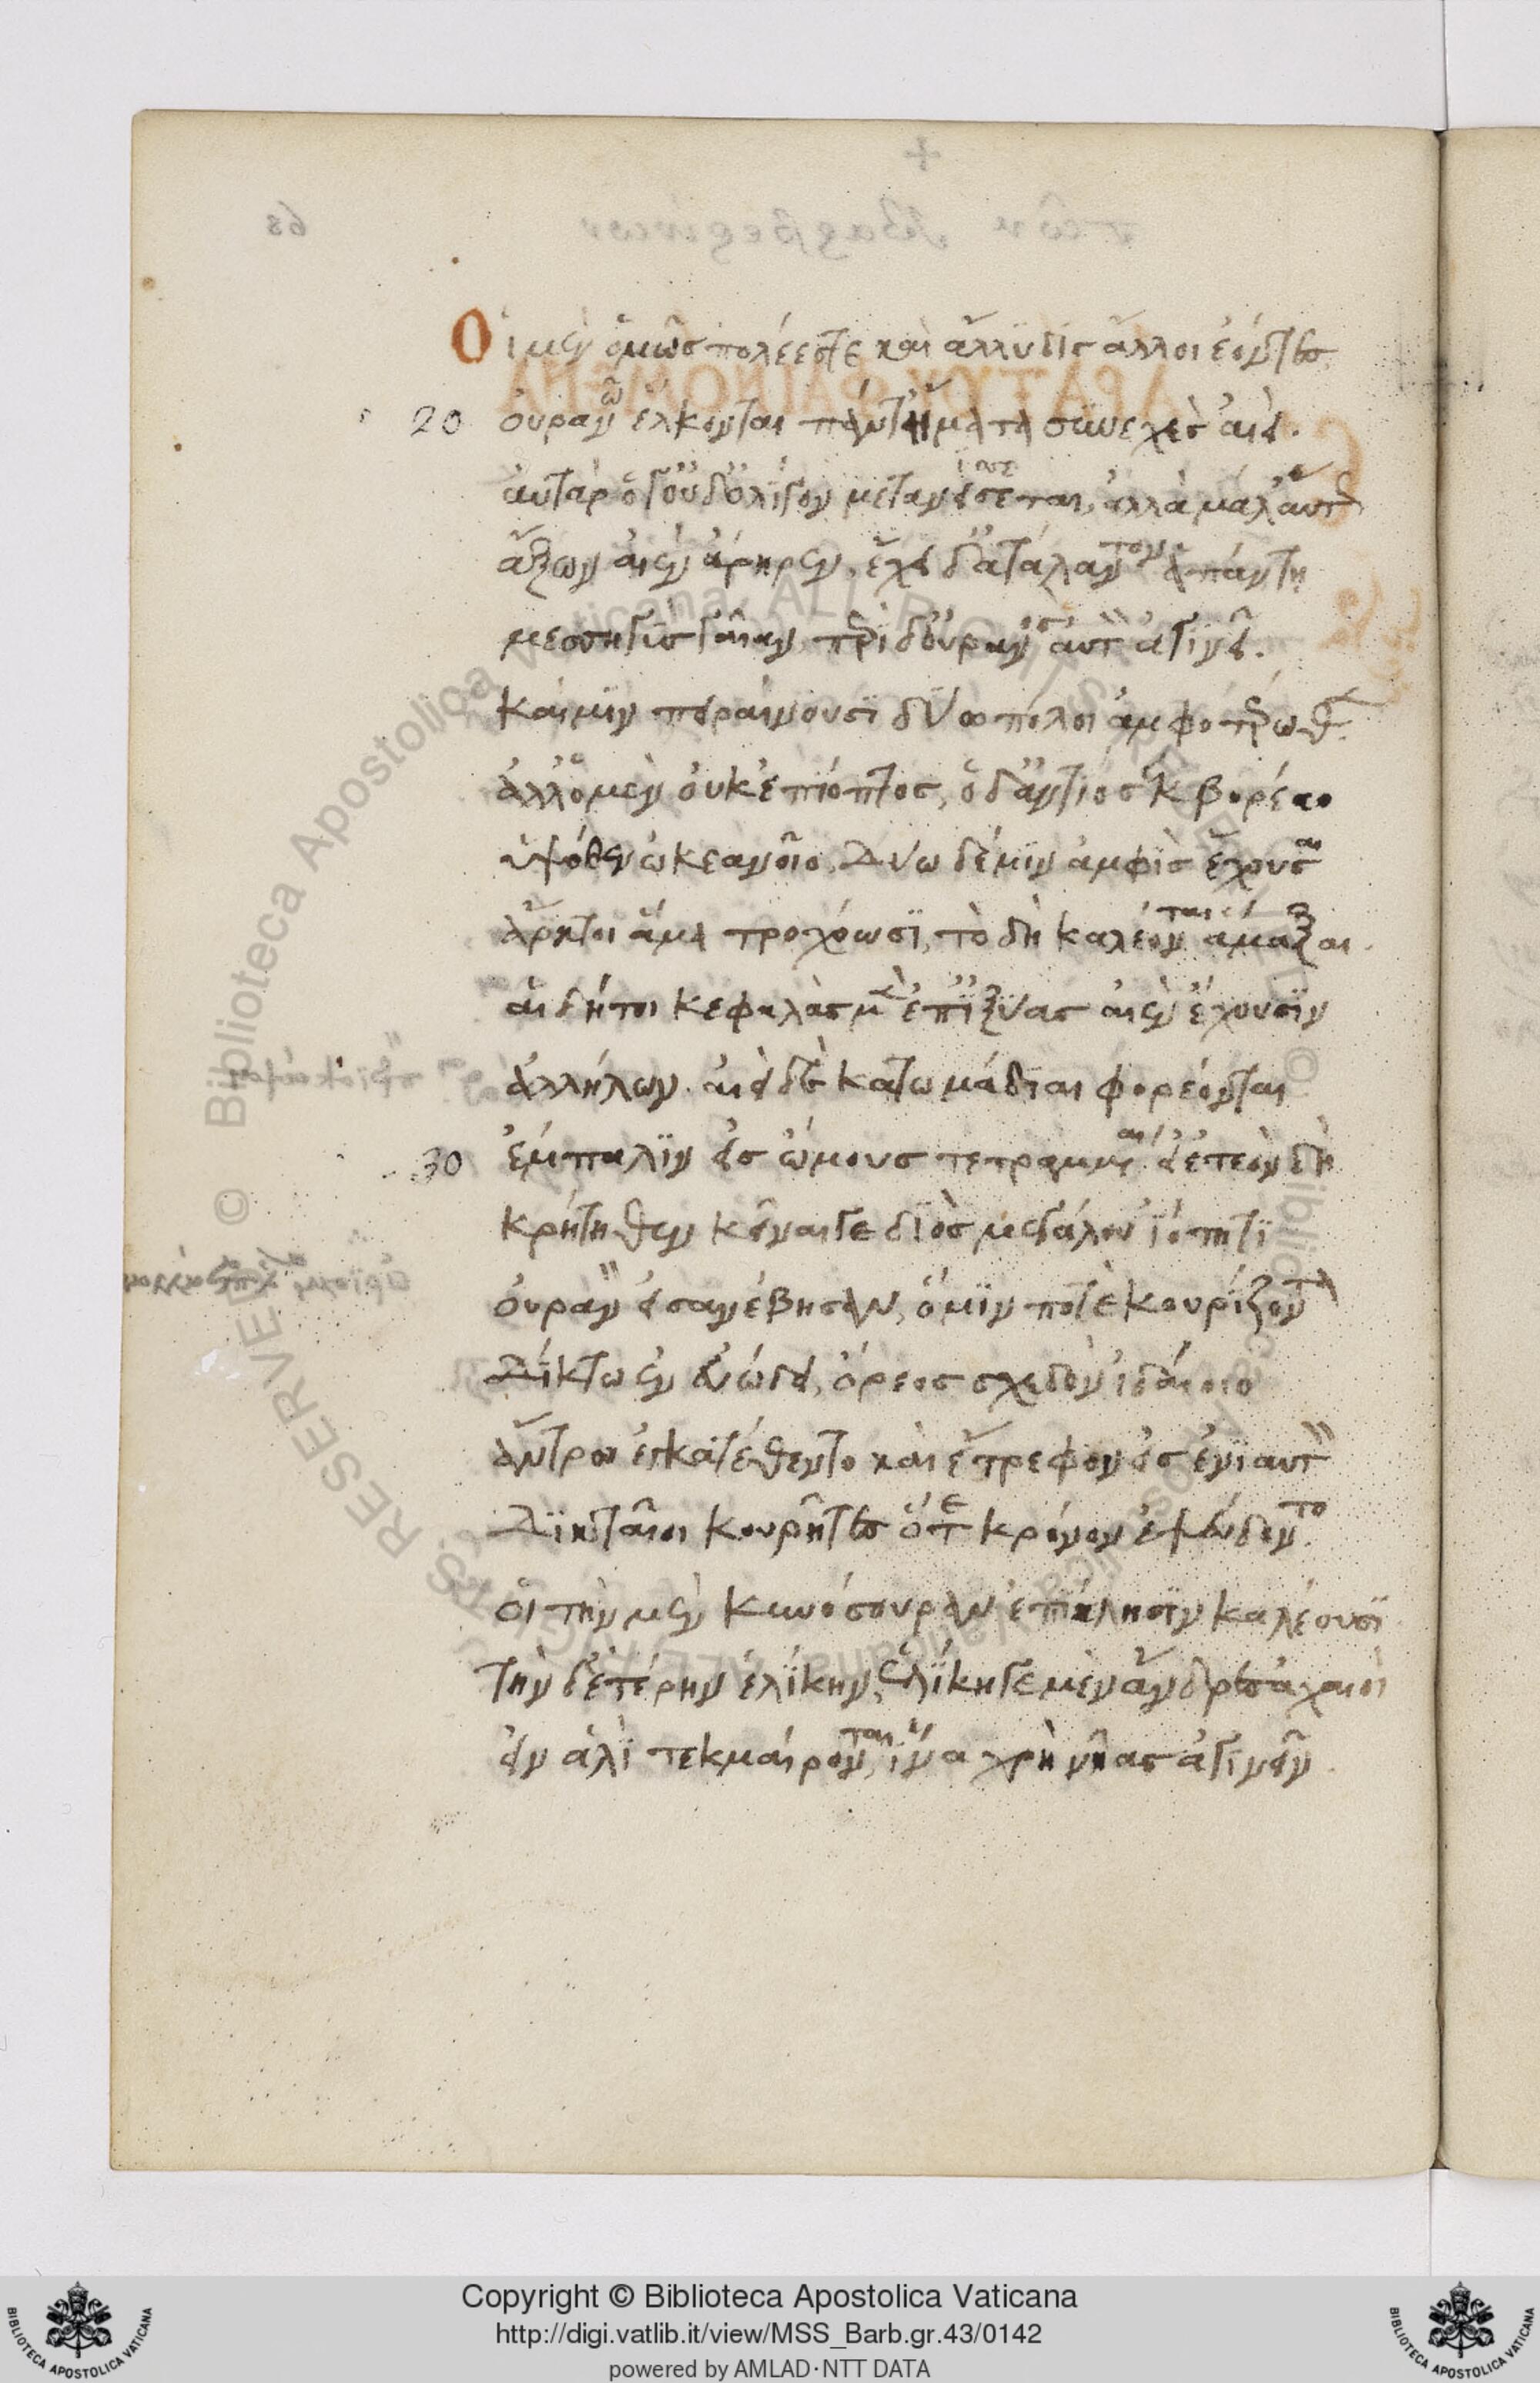 Οἱ μὲν ὁμῶς πολέες τε καὶ ἄλλυδις ἄλλοι ἐόντες
20 οὐρανῷ ἕλκονται πάντ' ἤματα συνεχὲς αἰεί.
αὐτὰρ ὅγ' οὐδ' ὀλίγον μετανίσσεται, ἀλλὰ μάλ' αὕτως
ἄξων αἰὲν ἄρηρεν, ἔχει δ' ἀτάλαντον ἁπάντη
μεσσηγὺς γαῖαν, περὶ δ' οὐρανὸς αὐτὸν ἀγινεῖ.
καί μιν πειραίνουσι δύω πόλοι ἀμφοτέρωθεν.
ἀλλ' ὁ μὲν οὐκ ἐπίοπτος, ὁ δ' ἀντίος ἐκ βορέαο
ὑψόθεν ὠκεανοῖο. Δύω δέ μιν ἀμφὶς ἔχουσαι
ἄρκτοι ἅμα τροχόωσι, τὸ δὴ καλέονται ἅμαξαι.
αἳ δή τοι κεφαλὰς μὲν ἐπ' ἰξύας αἰὲν ἔχουσιν
ἀλλήλων. αἰεὶ δὲ κατωμάδιαι φορέονται
30 ἔμπαλιν εἰς ὤμους τετραμμέναι. εἰ ἐτεὸν δὴ
Κρήτηθεν κεῖναί γε διὸς μεγάλου ἰότητι
οὐρανὸν εἰσανέβησαν, ὅ μιν ποτὲ κουρίζοντα
Δίκτω ἐν εὐώδει, ὄρεος σχεδὸν ἰδαίοιο
ἄντρῳ ἐγκατέθεντο καὶ ἔτρεφον εἰς ἐνιαυτὸν
Δικταῖοι κουρῆτες ὅτε κρόνον ἐψεύδοντο.
οἳ τὴν μὲν κυνόσουραν ἐπίκλησιν καλέουσι
τὴν δ' ἑτέρην ἑλίκην, ἑλίκη γε μὲν ἄνδρες ἀχαιοὶ
εἰν ἁλὶ τεκμαίρονται, ἵνα χρὴ νῆας ἀγινεῖν.
© Biblioteca Apostolica Vaticana, ALL RIGHTS RESERVED
Copyright © Biblioteca Apostolica Vaticana
http://digi.vatlib.it/view/MSS_Barb.gr.43/0142
powered by AMLAD·NTT DATA
BIBLIOTECA APOSTOLICA VATICANA
BIBLIOTECA APOSTOLICA VATICANA